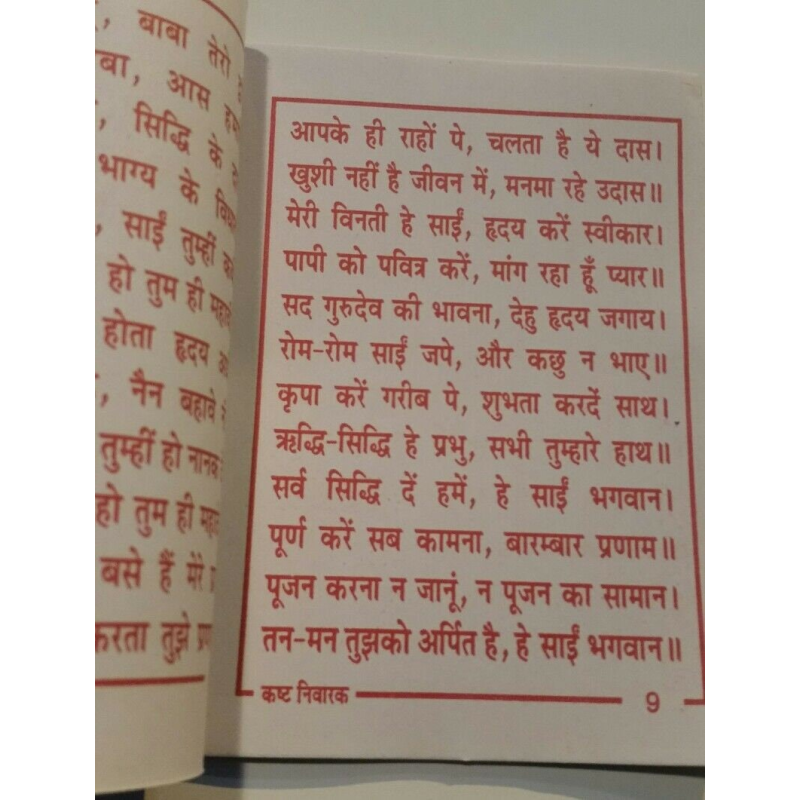 , बाबा तेरो
बा, आस
, सिद्धि के
भाग्य के
, साईं तुम्हीं
हो तुम ही
होता हृदय
, नैन बहावे
तुम्हीं हो नानक
हो तुम ही
बसे हैं मेरे
करता तुझे
आपके ही राहों पे, चलता है ये दास।
खुशी नहीं है जीवन में, मनमा रहे उदास॥
मेरी विनती हे साईं, हृदय करें स्वीकार।
पापी को पवित्र करें, मांग रहा हूँ प्यार॥
सद गुरुदेव की भावना, देहु हृदय जगाय।
रोम-रोम साईं जपे, और कछु न भाए॥
कृपा करें गरीब पे, शुभता करदें साथ।
ऋद्धि-सिद्धि हे प्रभु, सभी तुम्हारे हाथ॥
सर्व सिद्धि दें हमें, हे साईं भगवान।
पूर्ण करें सब कामना, बारम्बार प्रणाम॥
पूजन करना न जानूं, न पूजन का सामान।
तन-मन तुझको अर्पित है, हे साईं भगवान॥
कष्ट निवारक 9